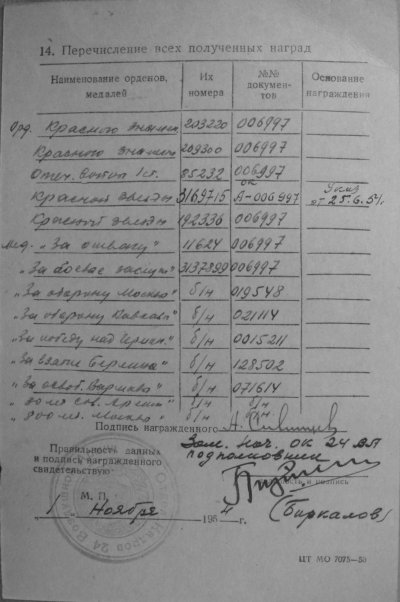 14. Перечисление всех полученных наград
Наименование орденов, медалей Их номера №№ документов Основание награждения
Орд. Красного знамени 203220 006997
Красного знамени 209300 006997
Отеч. войны 1 ст. 85232 006997
Красной звезды 3169715 ОК А-006997 Указ от 25.6.54
Красной звезды 192336 006997
мед. „За отвагу" 11624 006997
„За боевые заслуги" 3137899 006997
„За оборону Москвы" б/н 019548
„За оборону Кавказа" б/н 021114
„За победу над Герман." б/н 0015211
„За взятие Берлина" б/н 128502
„За освоб. Варшавы" б/н 071614
„30 лет Сов. Армии" б/н б/н
„800 лет Москвы" б/н б/н
Подпись награжденного А.
Правильность данных и подпись награжденного свидетельствую:
Зам. нач. ОК 24 ВА
подполковник
должность и подпись
(Биркалов)
М. П.
„1" Ноября 1954 г.
ЦТ МО 7075—53